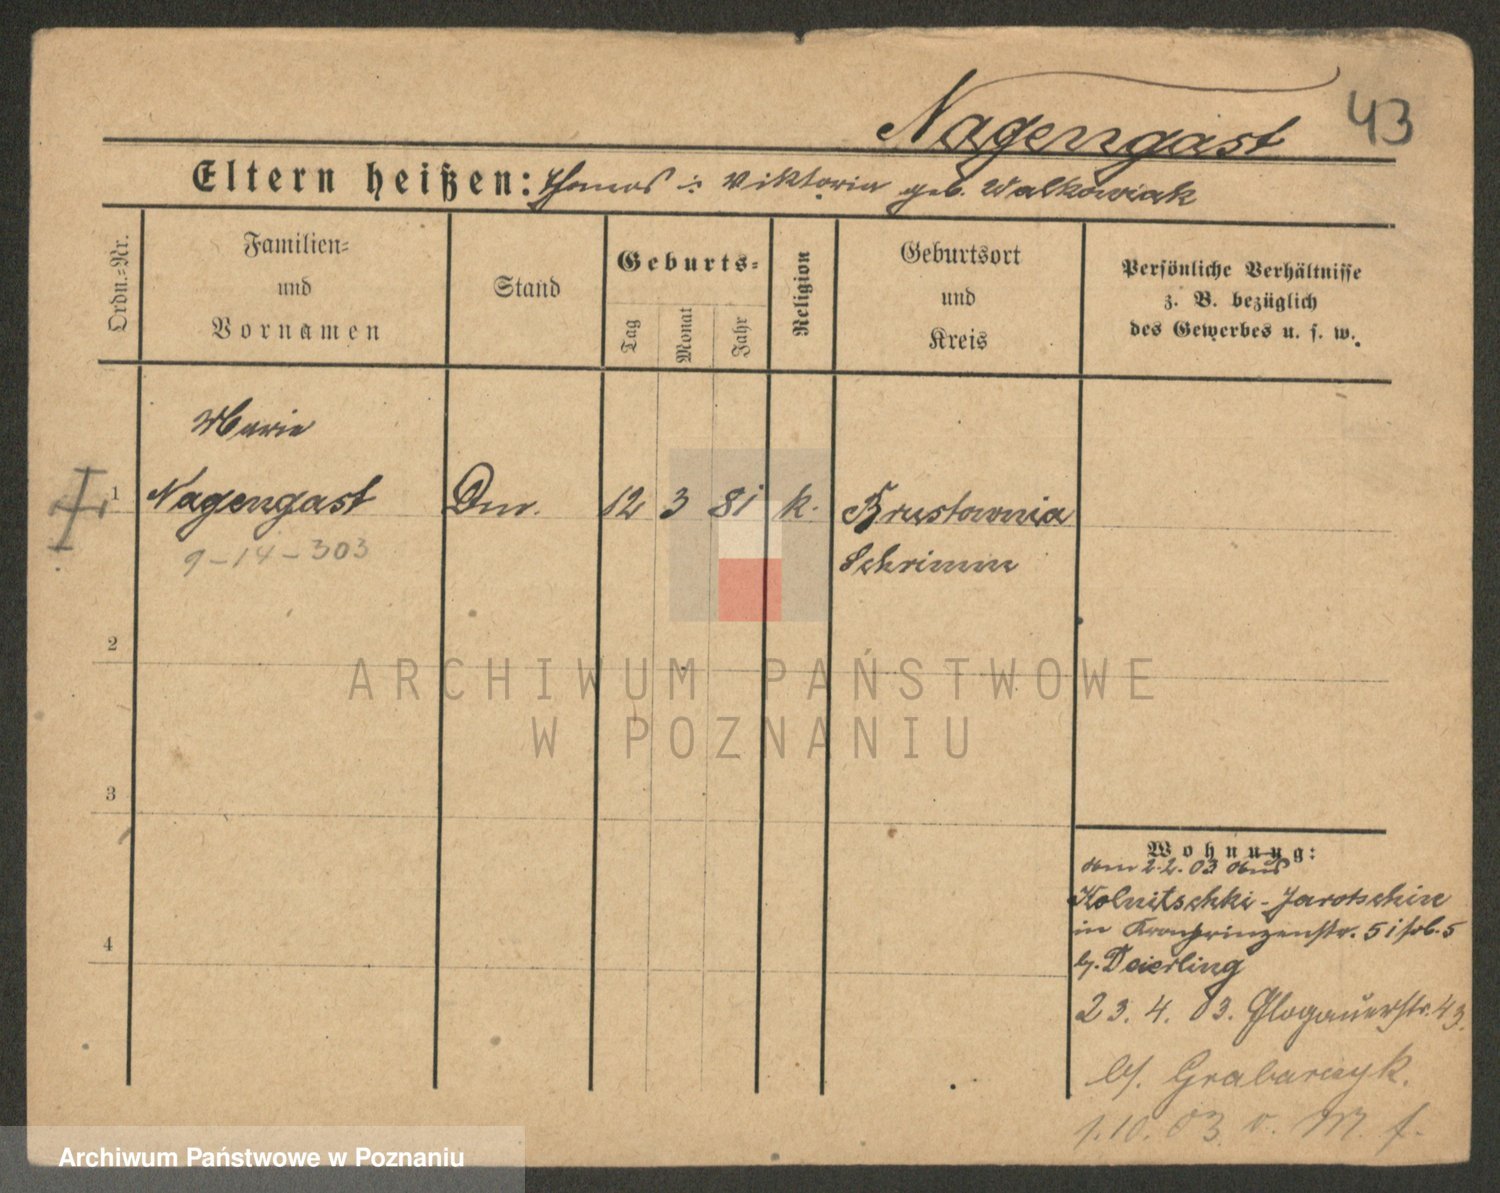 Nagengast 43
Eltern heißen: Thomas u. Viktoria geb. Walkowiak
Ordn.=Nr.
Familien=
und
Vornamen
Stand
Geburts=
Tag
Monat
Jahr
Religion
Geburtsort
und
Kreis
Persönliche Verhältnisse
z. B. bezüglich
des Gewerbes u. s. w.
Marie
1 Nagengast Dm. 12 3 81 k. Brustownia
9-14-303 Schrimm
2
3
4
Wohnung:
2.2.03 aus
Kolnitschki-Jarotschin
in Kronprinzenstr. 5
b. Deierling
23. 4. 03. Glogauerstr. 43.
b/. Grabarczyk.
1.10.03 v. M. f.
ARCHIWUM PAŃSTWOWE
W POZNANIU
Archiwum Państwowe w Poznaniu